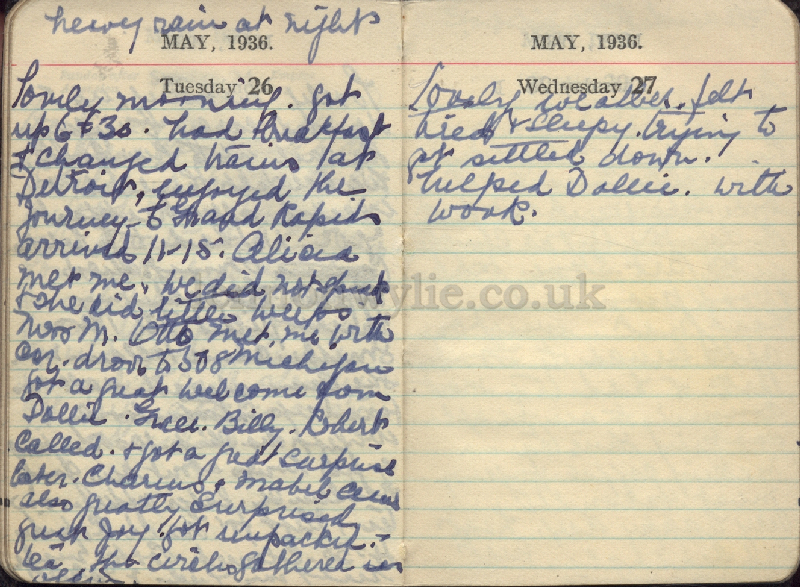 heavy rain at night
MAY, 1936.
Tuesday 26
Lovely morning. got
up 6 + 30. had breakfast
& changed trains at
Detroit, enjoyed the
Journey to Grand Rapids
arrived 11-15. Alicia
met me, we did not speak
& she did little weeps
M. Otto met me with
car. drove to 508 Michigan
got a great welcome from
Dollie. Billy. Robert
called. & got a great surprise
later. Charlie & Mabel came
also greatly surprised
great Joy. got unpacked. -
tea, the circle gathered in
MAY, 1936.
Wednesday 27
Lovely weather. felt
tired & sleepy. trying to
get settled down.
helped Dollie. with
work.
wylie.co.uk